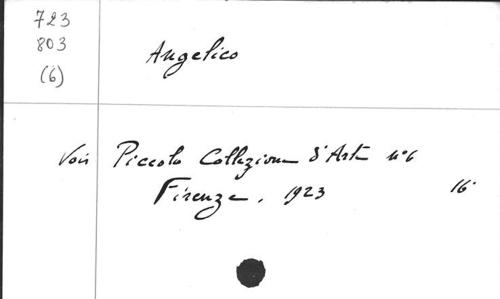 723
803
(6)
Angelico
Voir Piccola Collezione d'Arte n°6
Firenze, 1923 16°